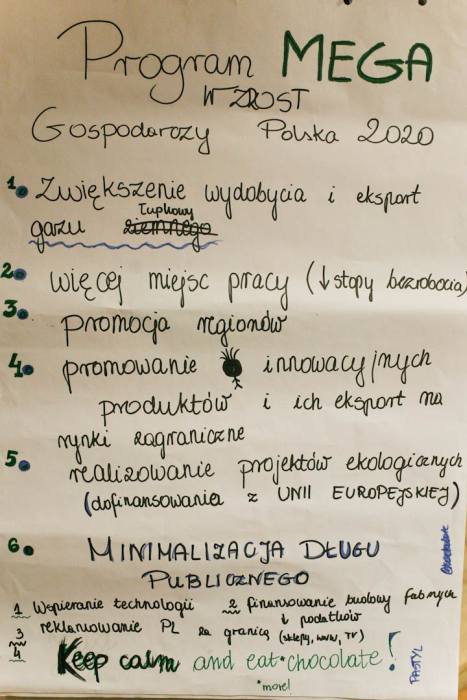 Program MEGA
WZROST
Gospodarczy Polska 2020
1. Zwiększenie wydobycia i eksport
Łupkowy
gazu ziemnego
2. więcej miejsc pracy (↓stopy bezrobocia)
3. promocja regionów
4. promowanie innowacyjnych
produktów i ich eksport na
rynki zagraniczne
5. realizowanie projektów ekologicznych
(dofinansowania z UNII EUROPEJSKIEJ)
6. MINIMALIZACJA DŁUGU
PUBLICZNEGO
1 Wspieranie technologii 2 finansowanie budowy fabrycznych
↓ podatków
3 reklamowanie PL za granicą (sklepy, www, TV)
4 Keep calm and eat*chocolate!
*more!
PASTYL